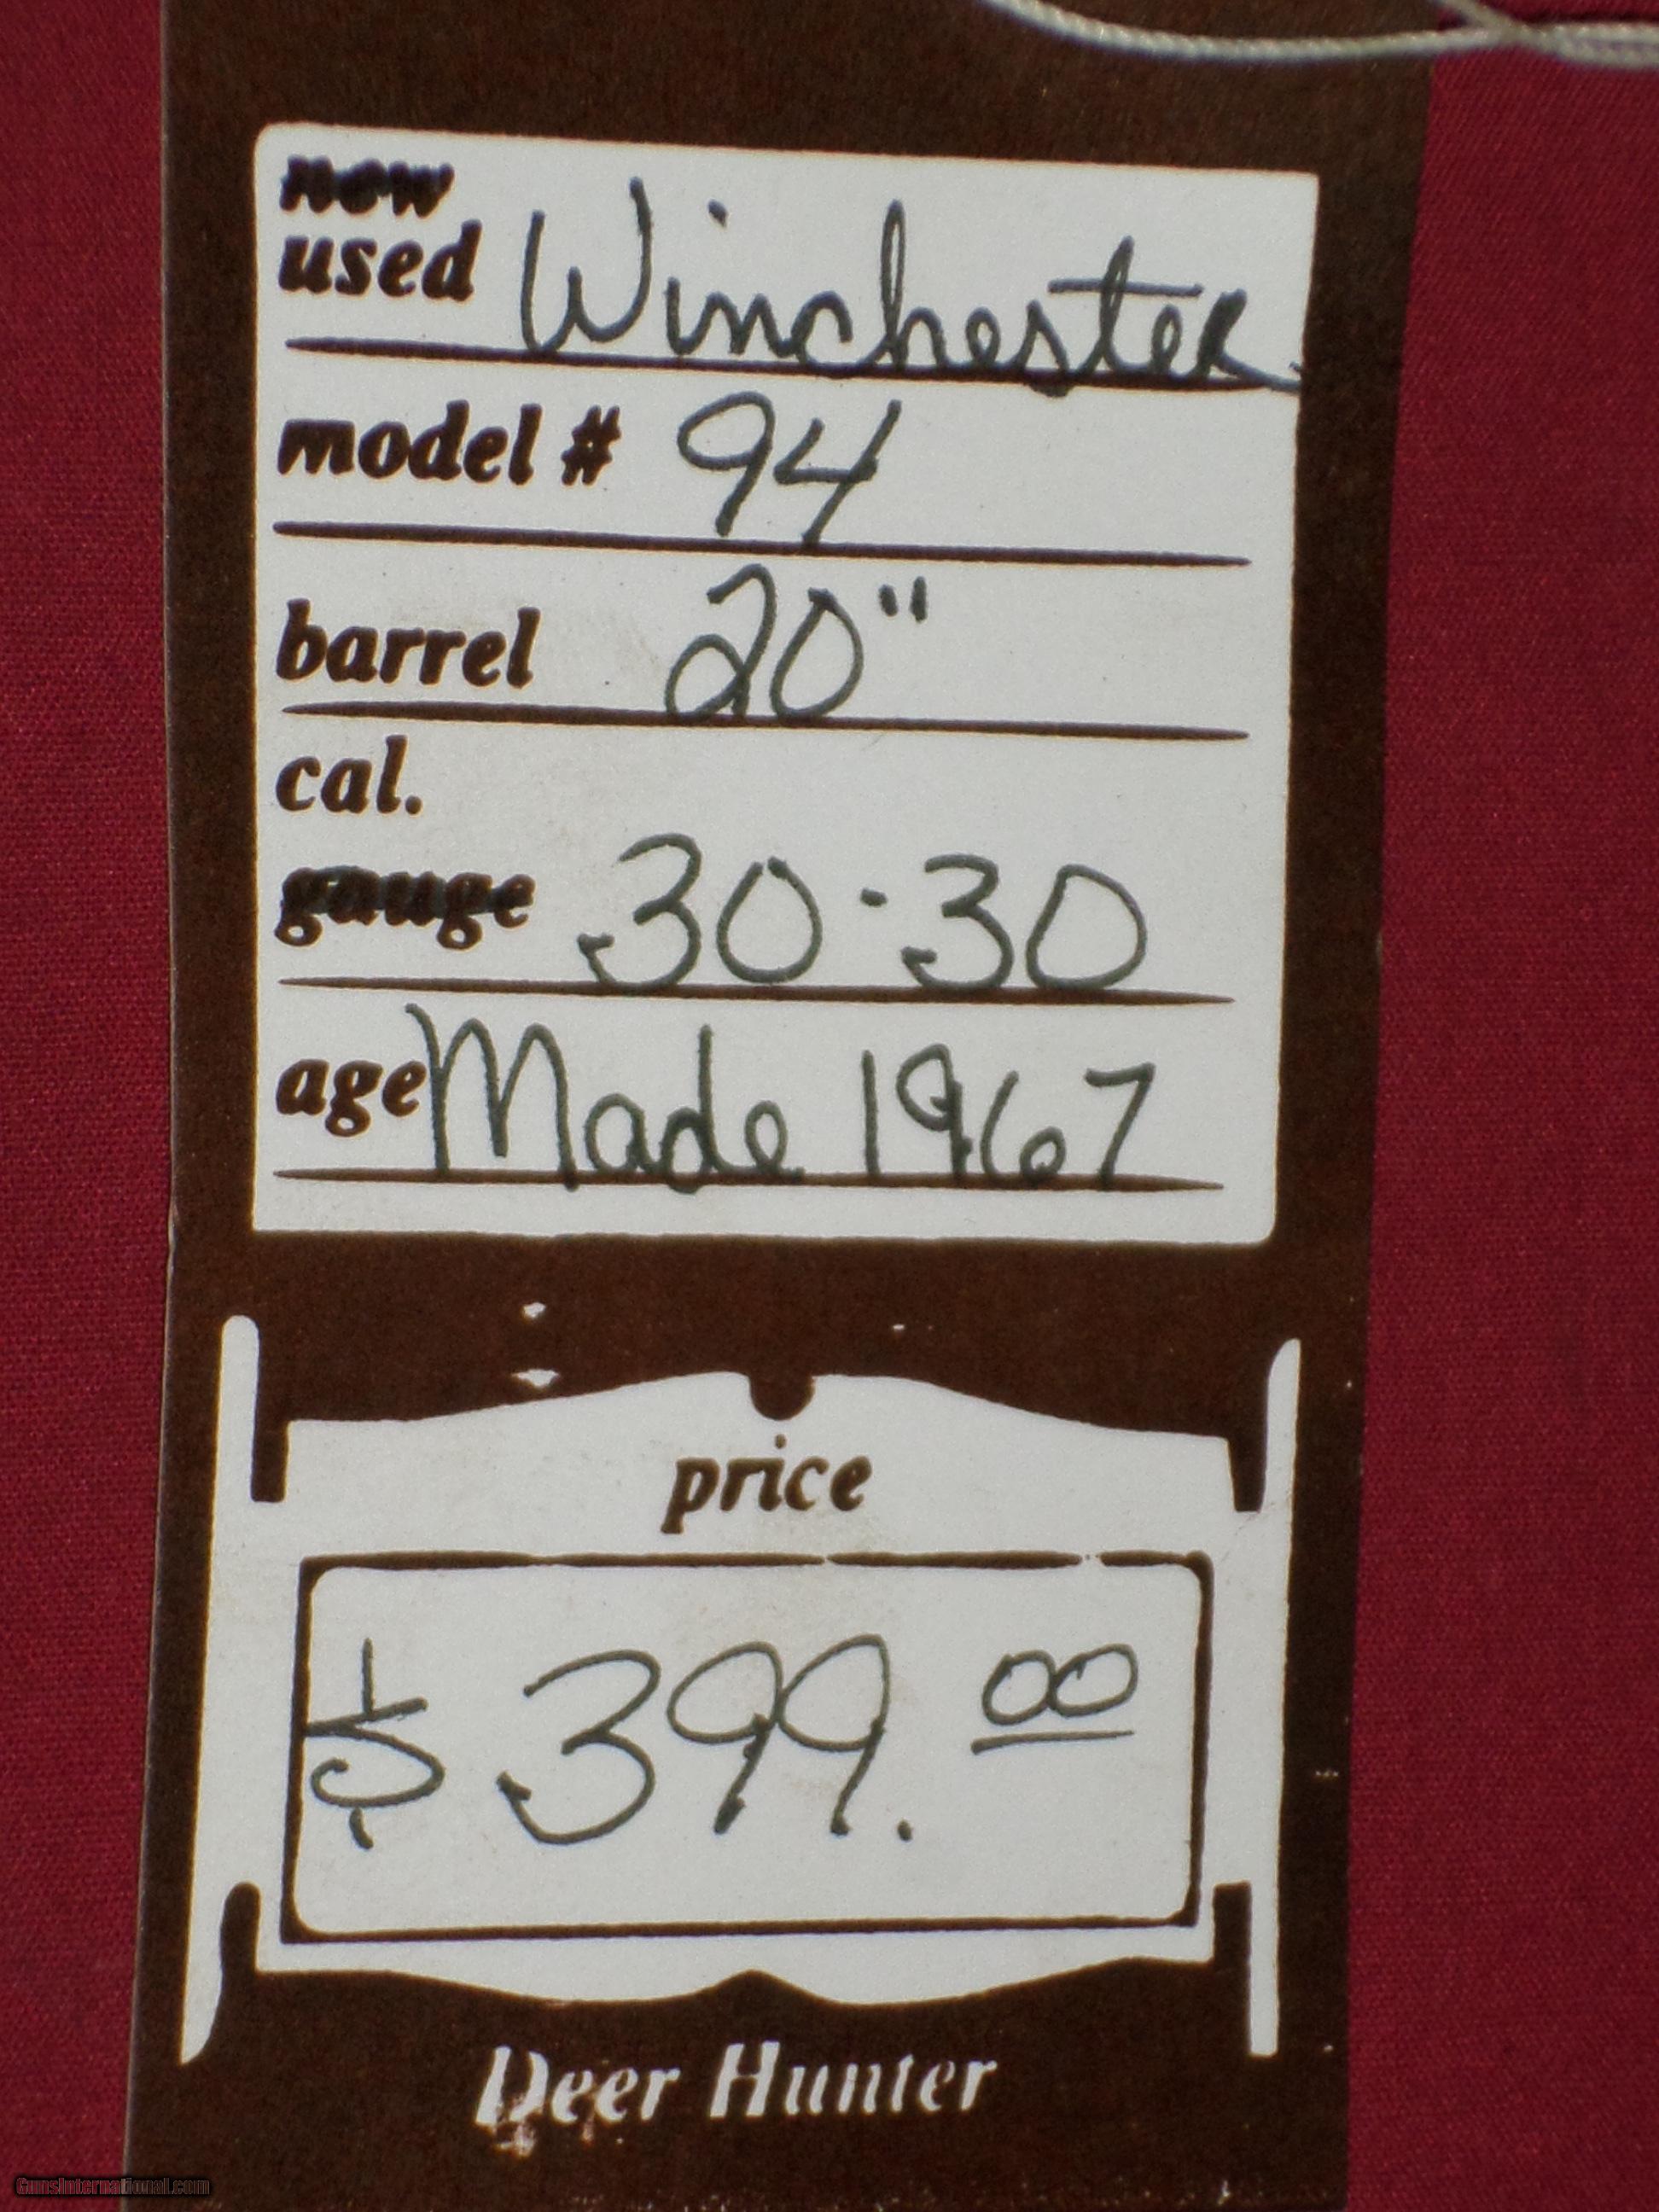 new
used Winchester
model # 94
barrel 20"
cal.
gauge 30-30
age Made 1967
price
$ 399.00
Deer Hunter
GunsInternational.com